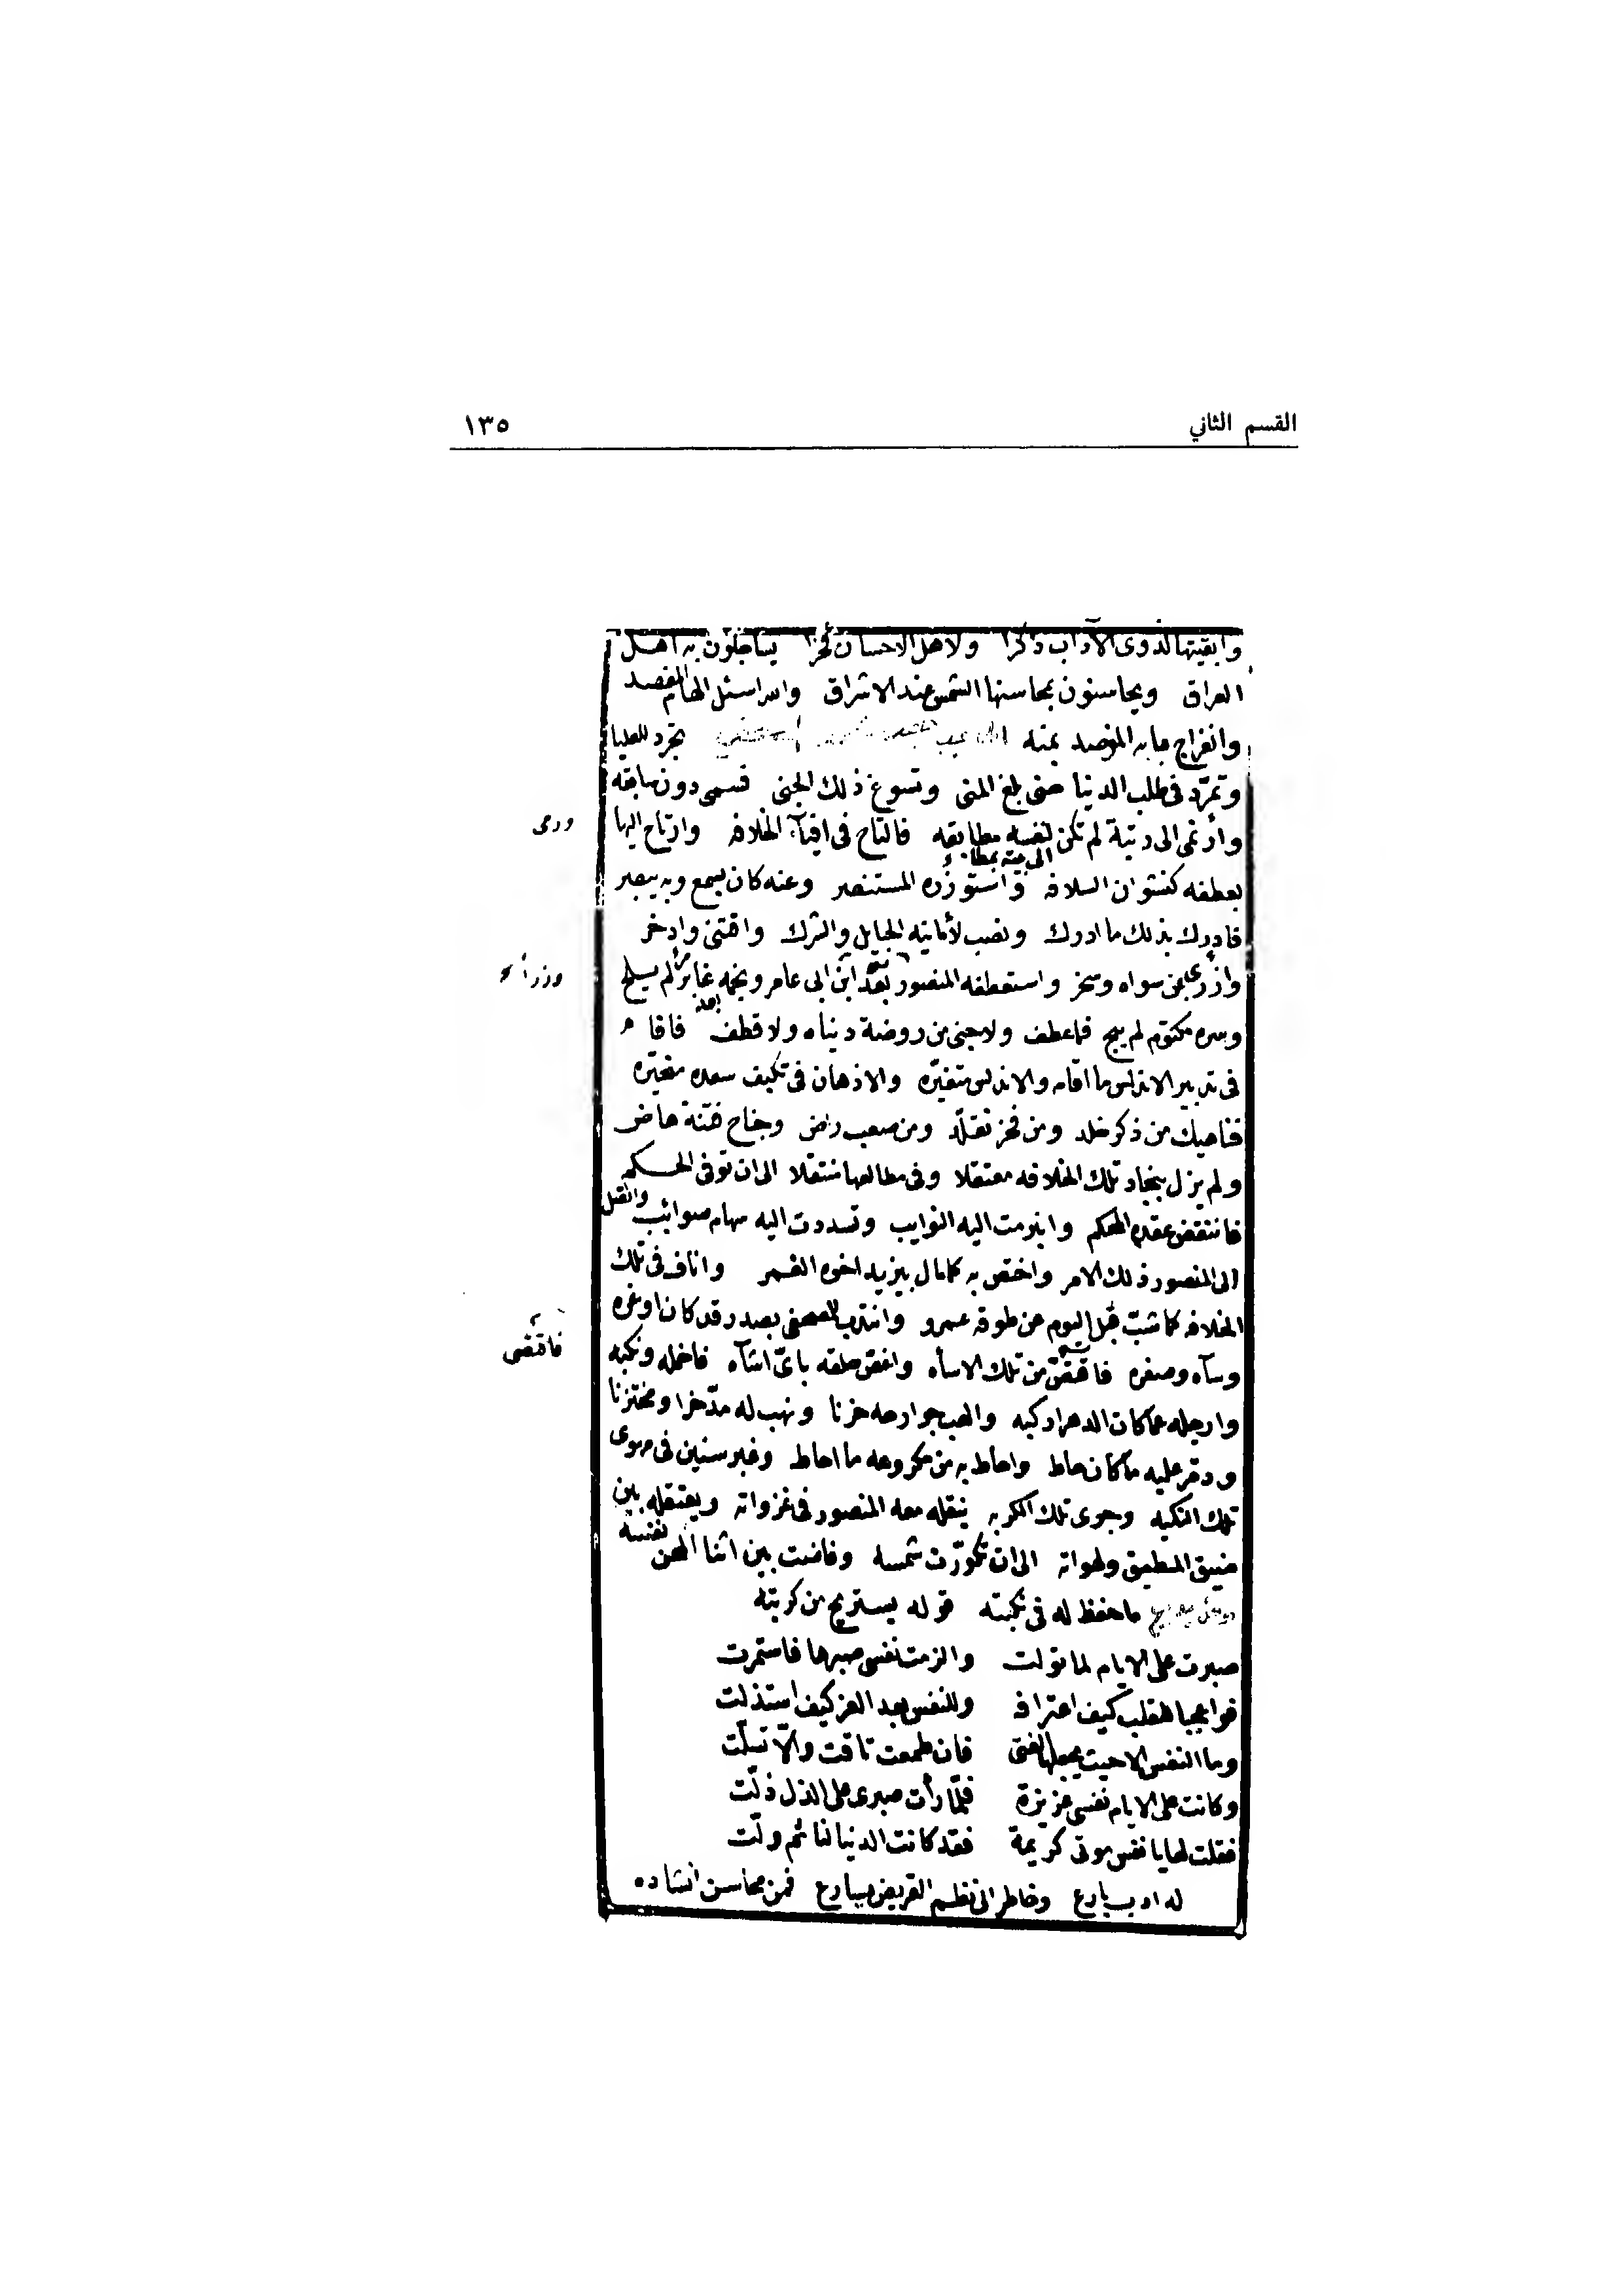 القسم الثاني ١٣٥
وابقيتها لذوى الآداب ذكرا ولاهل الاحسان فخرا يساجلون به اهل
العراق ويحاسنون بمحاسنها الشمس عند الاشراق والله اسئل الهام المقصد
وانفراج بمنه تجرد للعليا
وتمرّد فى طلب الدنيا حتى بلغ المنى وتسوغ ذلك الجنى فسمى دون سابقه
وارتمى الى رتبة لم تكن لنفسه مطابقه فالتاح فى افيآء الخلافه وارتاح اليها
ورمى
بعطفه كنشوان السلافه واستوزره المستنصر وعنه كان يسمع وبه يبصر
فادرك بذلك ما ادرك ونصب لأمانيه الحبايل والشرك واقتنى وادخر
وازرى بمن سواه وسخر واستعطفه المنصور ابن ابى عامر ونجمه غاير لم يلح
وسره مكتوم لم يبح فما عطف ولا جنى من روضة دنياه ولا قطف فاقام
فى تدبير الاندلس ما اقام والاندلس متغيّره والاذهان فى تكيف سعده متحيّره
فناهيك من ذكر خلد ومن فخر تقلّد ومن صعب راض وجناح فتنة هاض
ولم يزل بنجاد تلك الخلافه معتقلا وفى مطالعها منتقلا الى ان توفى الحكم
فانتقض عقده المحكم وانبرمت اليه النوايب وتسددت اليه سهام صوائب وانتقل
الى المنصور ذلك الامر واختص به كما مال بيزيد اخوه الغمر واناف فى تلك
الخلافه كما شبّ قبل اليوم عن طوقه عمرو وانتدب للمصحفى بصدر قد كان اوغره
وسآه وصغره فاقتص من تلك الاسآه واغص حلقه باىّ اشآه فاخمله ونكبه
فاقتصى
وارجله عما كان الدهر اركبه والهب جوارحه حزنا ونهب له مدّخرا ومختزنا
ودمر عليه ما كان حاط واحاط به من مكروهه ما احاط وغبر سنين فى مهوى
تلك النكبه وجوى تلك الكربه ينقله معه المنصور فى غزواته ويعتقله بين
ضيق المطبق ولهواته الى ان تكورّت شمسه وفاضت بين اثنا المحن نفسه
ما حفظ له فى نكبته قوله يستريح من كربته
صبرت على الايام لما تولت والزمت نفسى صبرها فاستمرت
فواعجبا للقلب كيف اعترافه وللنفس بعد العز كيف استذلت
وما النفس الا حيث يجعلها الفتى فان طمعت تاقت والّا تسلّت
وكانت على الايام نفسى عزيزة فلمّا رأت صبرى على الذل ذلّت
فقلت لها يا نفس موتى كريمة فقد كانت الدنيا لنا ثم ولّت
له ادب بارع وخاطر الى نظم القريض يسارع فمن محاسن انشاده